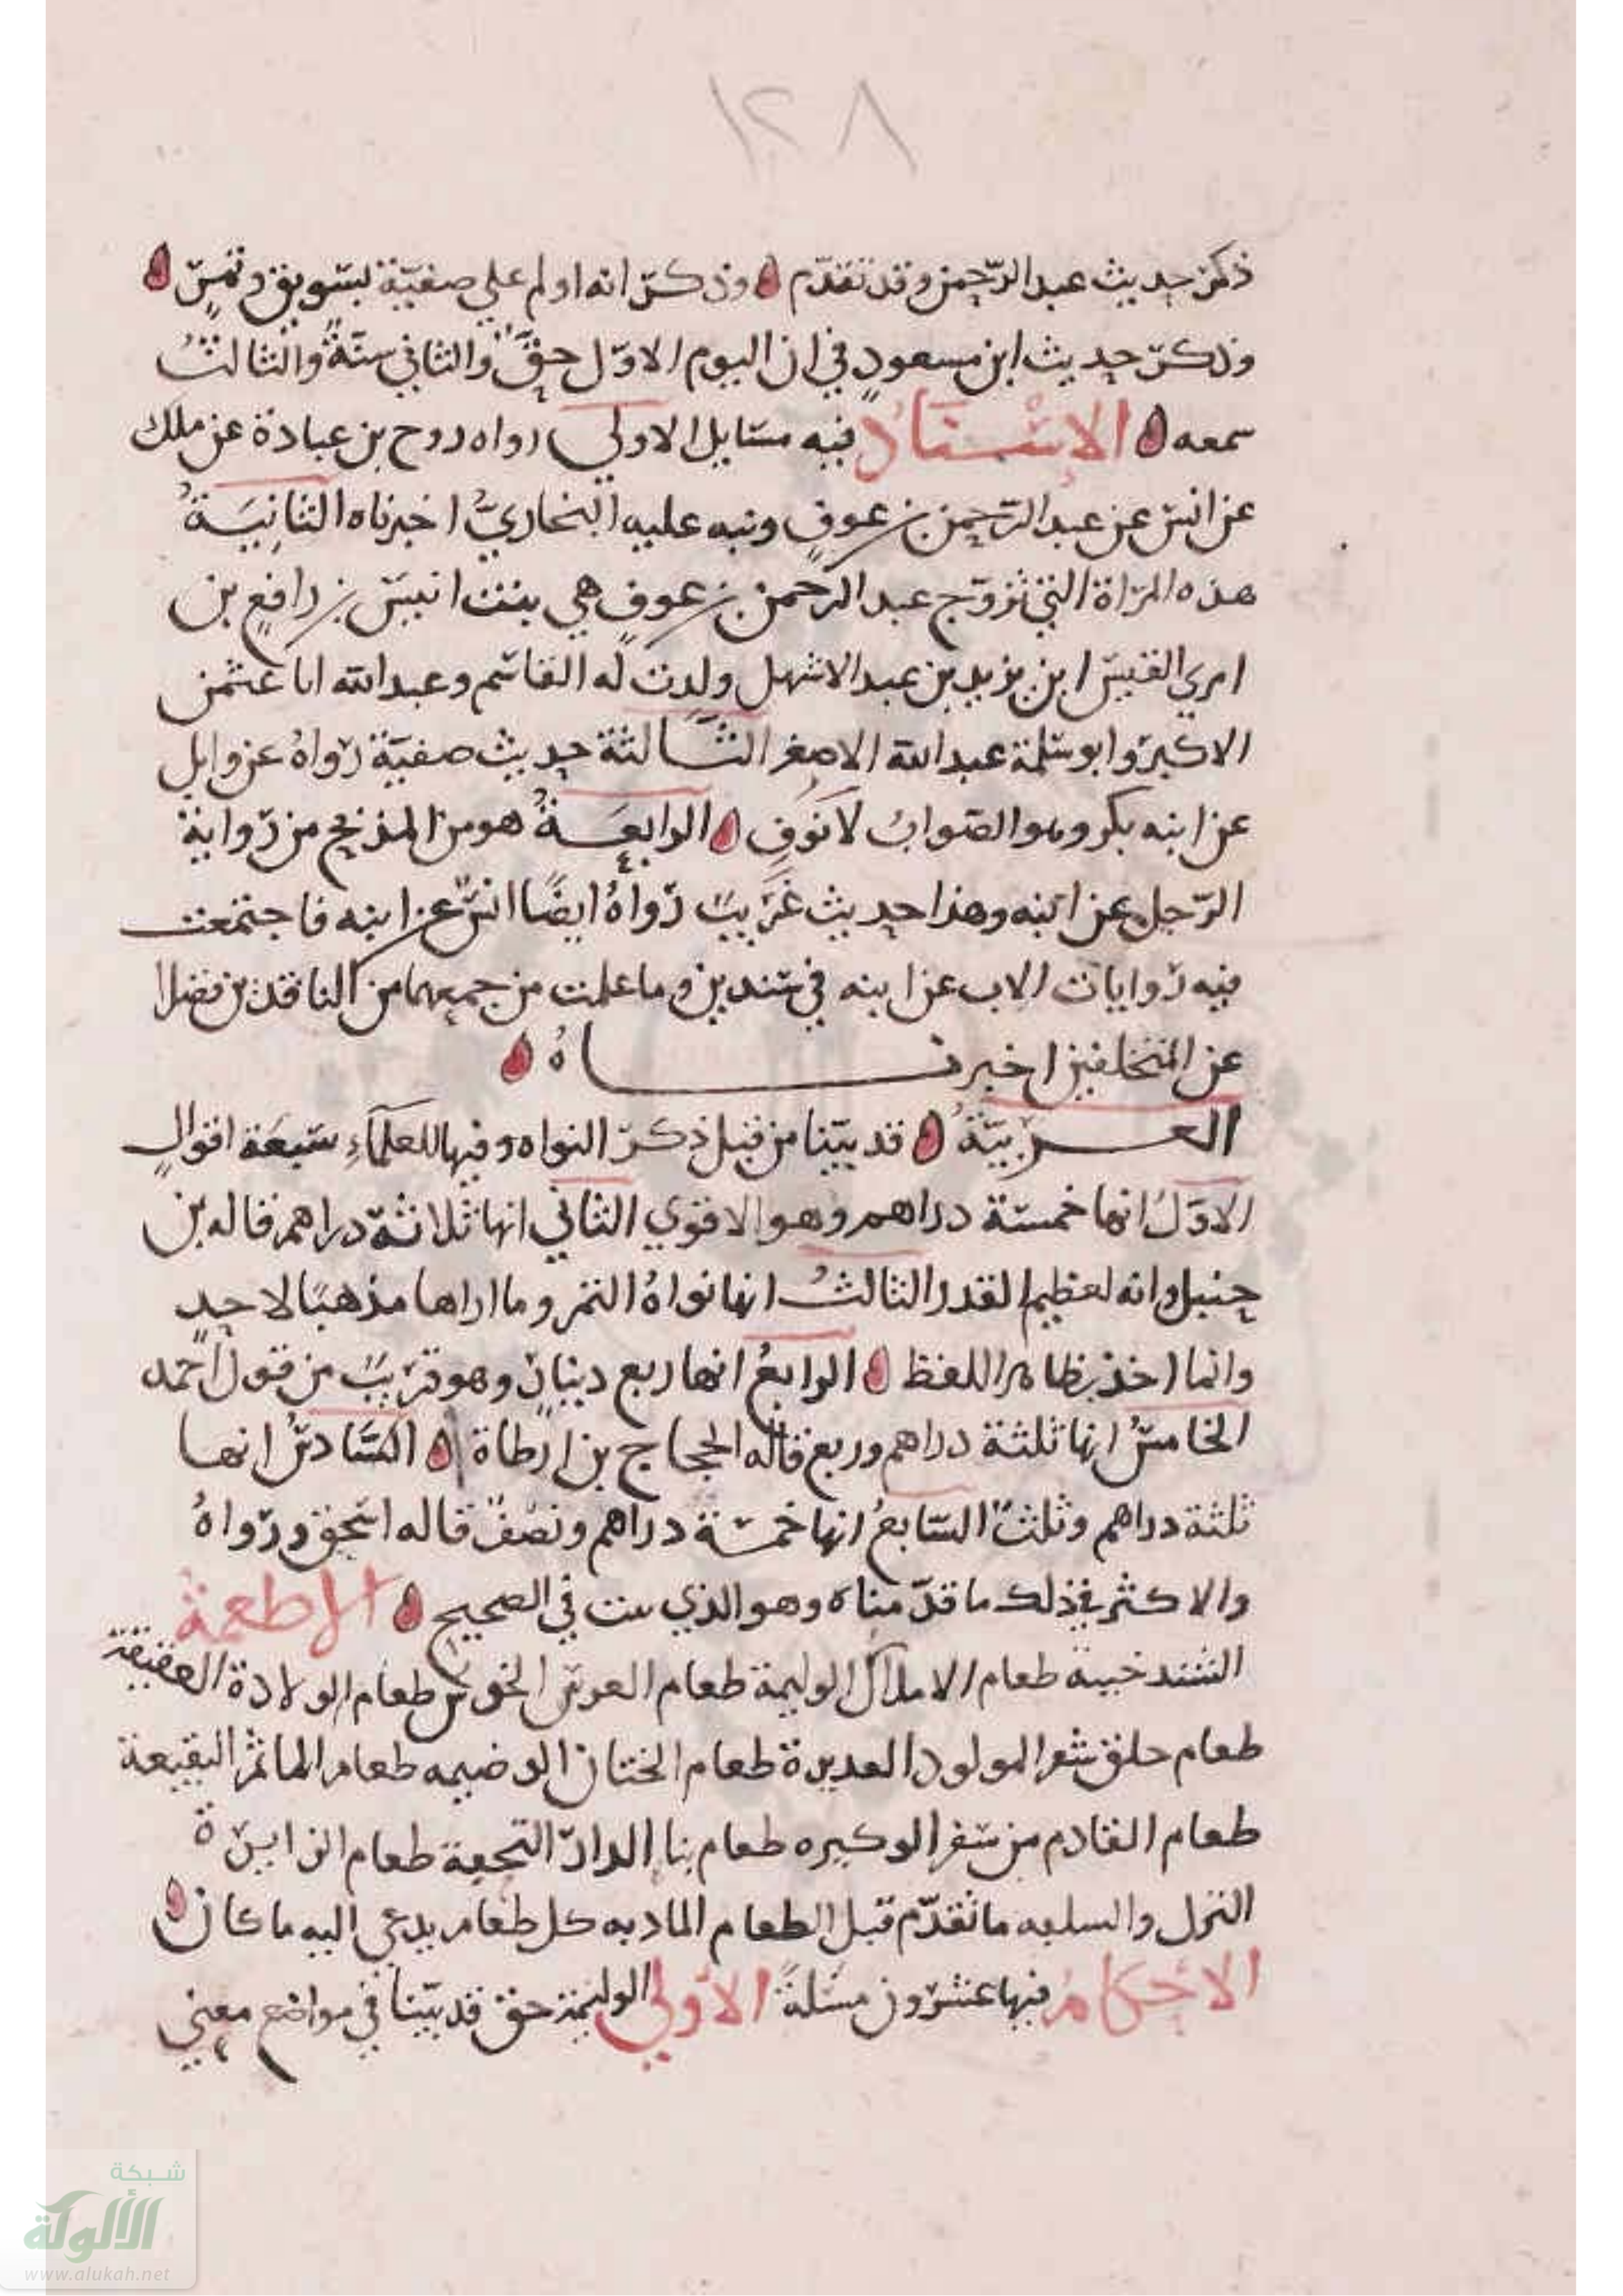 ١٢٨
ذكر حديث عبد الرحمن وقد تقدّم وذكر انه اولم علي صفيّة بسويق وتمر
وذكر حديث ابن مسعودٍ في ان اليوم الاوّل حقّ والثاني سنّةٌ والثالثُ
سمعه الإسنادُ فيه مسايل الاولي رواه روح بن عبادة عن ملك
عن انس عن عبد الرّحمن بن عوفٍ ونبه عليه البخاريُّ اخبرناه الثانِيَةُ
هذه المراة التي تزوّج عبد الرحمن بن عوفٍ هي بنت انيس بن رافعٍ بن
امري القيس ابن يزيد بن عبد الاشهل ولدت له القاسم وعبد الله ابا عثمن
الاكبر وابو سلمة عبد الله الاصغر الثّالثة حديث صفيّة رواهُ عن وايل
عن ابنه بكر وهو الصّوابُ لا نَوفٍ الرابعةُ هو من المذبج من رواية
الرّجل عن ابنه وهذا حديث غَريبٌ رواهُ ايضًا انس عن ابنه فاجتمعت
فيه روايات الاب عن ابنه في سندين وما علمت من جمعهما من الناقدين فضلا
عن المتخلفين اخبرناهُ
العربيّةُ قد بيّنا من قبل ذكر النواه وفيها للعلمآءِ سَبعَة اقوالٍ
الاوّلُ انها خمسة دراهم وهو الاقوي الثاني انها ثلاثة دراهم قاله بن
حنبل وانه لعظيم القدر الثالثُ انها نواهُ التمر وما اراها مذهبًا لاحدٍ
وانما اخذ بظاهر اللفظ الرابعُ انها ربع دينارٍ وهو قريبٌ من قول احمد
الخامسُ انها ثلثة دراهم وربع قاله الحجاج بن ارطاة السّادسُ انها
ثلثة دراهم وثلثٌ السّابعُ انها خمسة دراهم ونصفٌ قاله اسحق ورواهُ
والاكثر في ذلك ما قدّمناه وهو الذي ىىت في الصحيح الاطعمة
الشندخية طعام الاملاك الوليمة طعام العرس الخرس طعام الولادة العقيقة
طعام حلق شعر المولود العذيرة طعام الختان الوضيمه طعام الماتم النقيعة
طعام القادم من سفر الوكيره طعام بنا الدار التحفة طعام الزايرة
النزل والسلعه ما تقدّم قبل الطعام المادبه كل طعام يدعي اليه ما كان
الاحكام فيها عشرون مسلةً الاولي الوليمة حق قد بيّنا في مواضع معني
شبكة
الألوكة
www.alukah.net